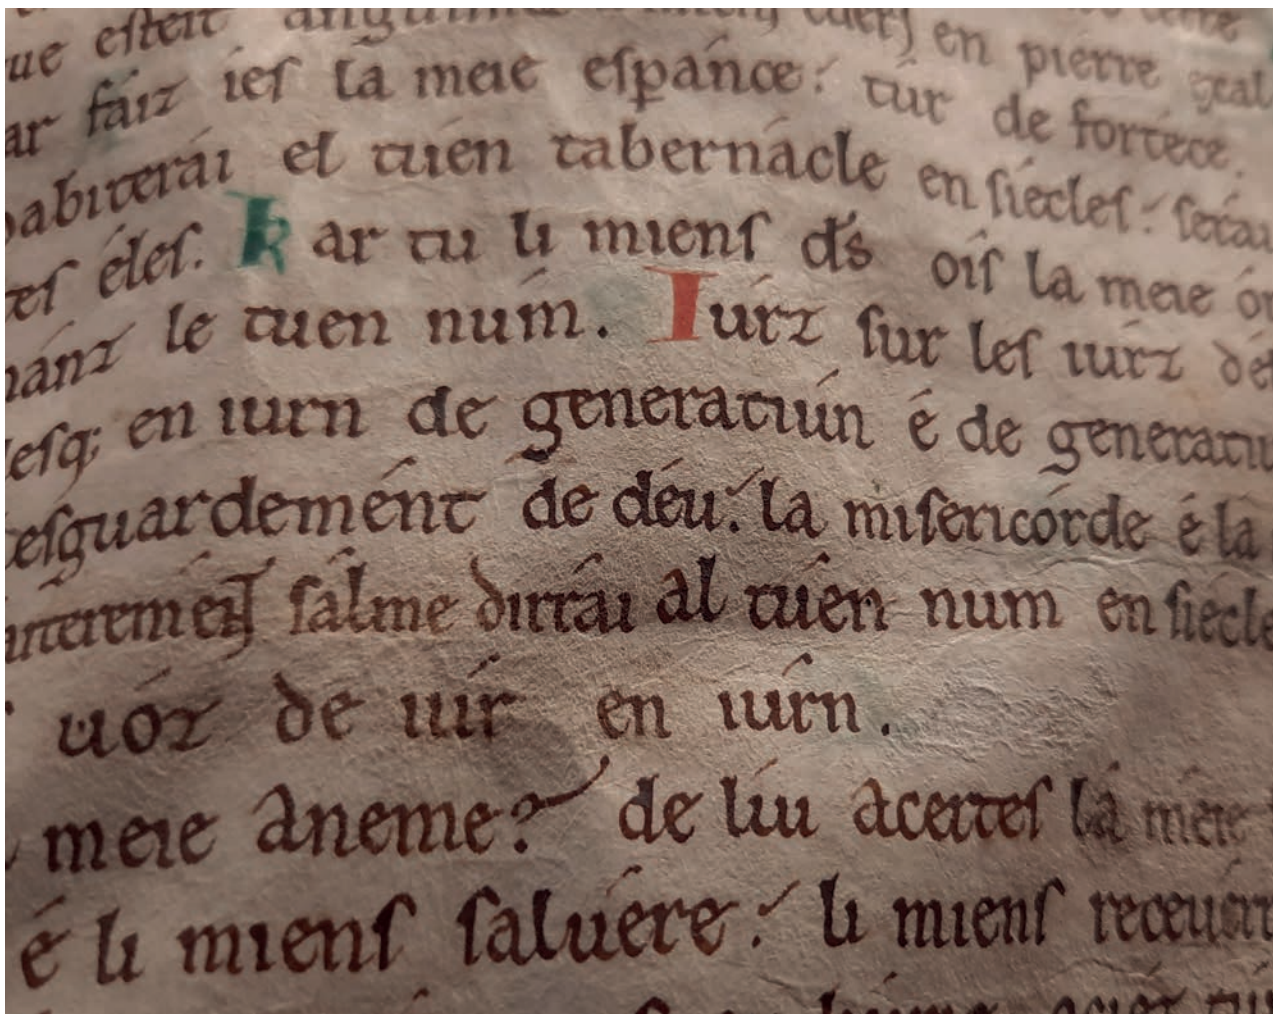 ue esteit en pierre
ar faiz ies la meie espance: tur de fortece.
abiterai el tuen tabernacle en siecles: serai
es éles. Kar tu li miens ds oïs la meie
nanz le tuen num. Iurz sur les iurz
esq; en iurn de generatiun é de generatiu
esguardement de deu: la misericorde é la
salme dirrai al tuen num en siecle
uoz de iur en iurn.
meie aneme? de liu acertes la meie
é li miens saluere: li miens receuerre